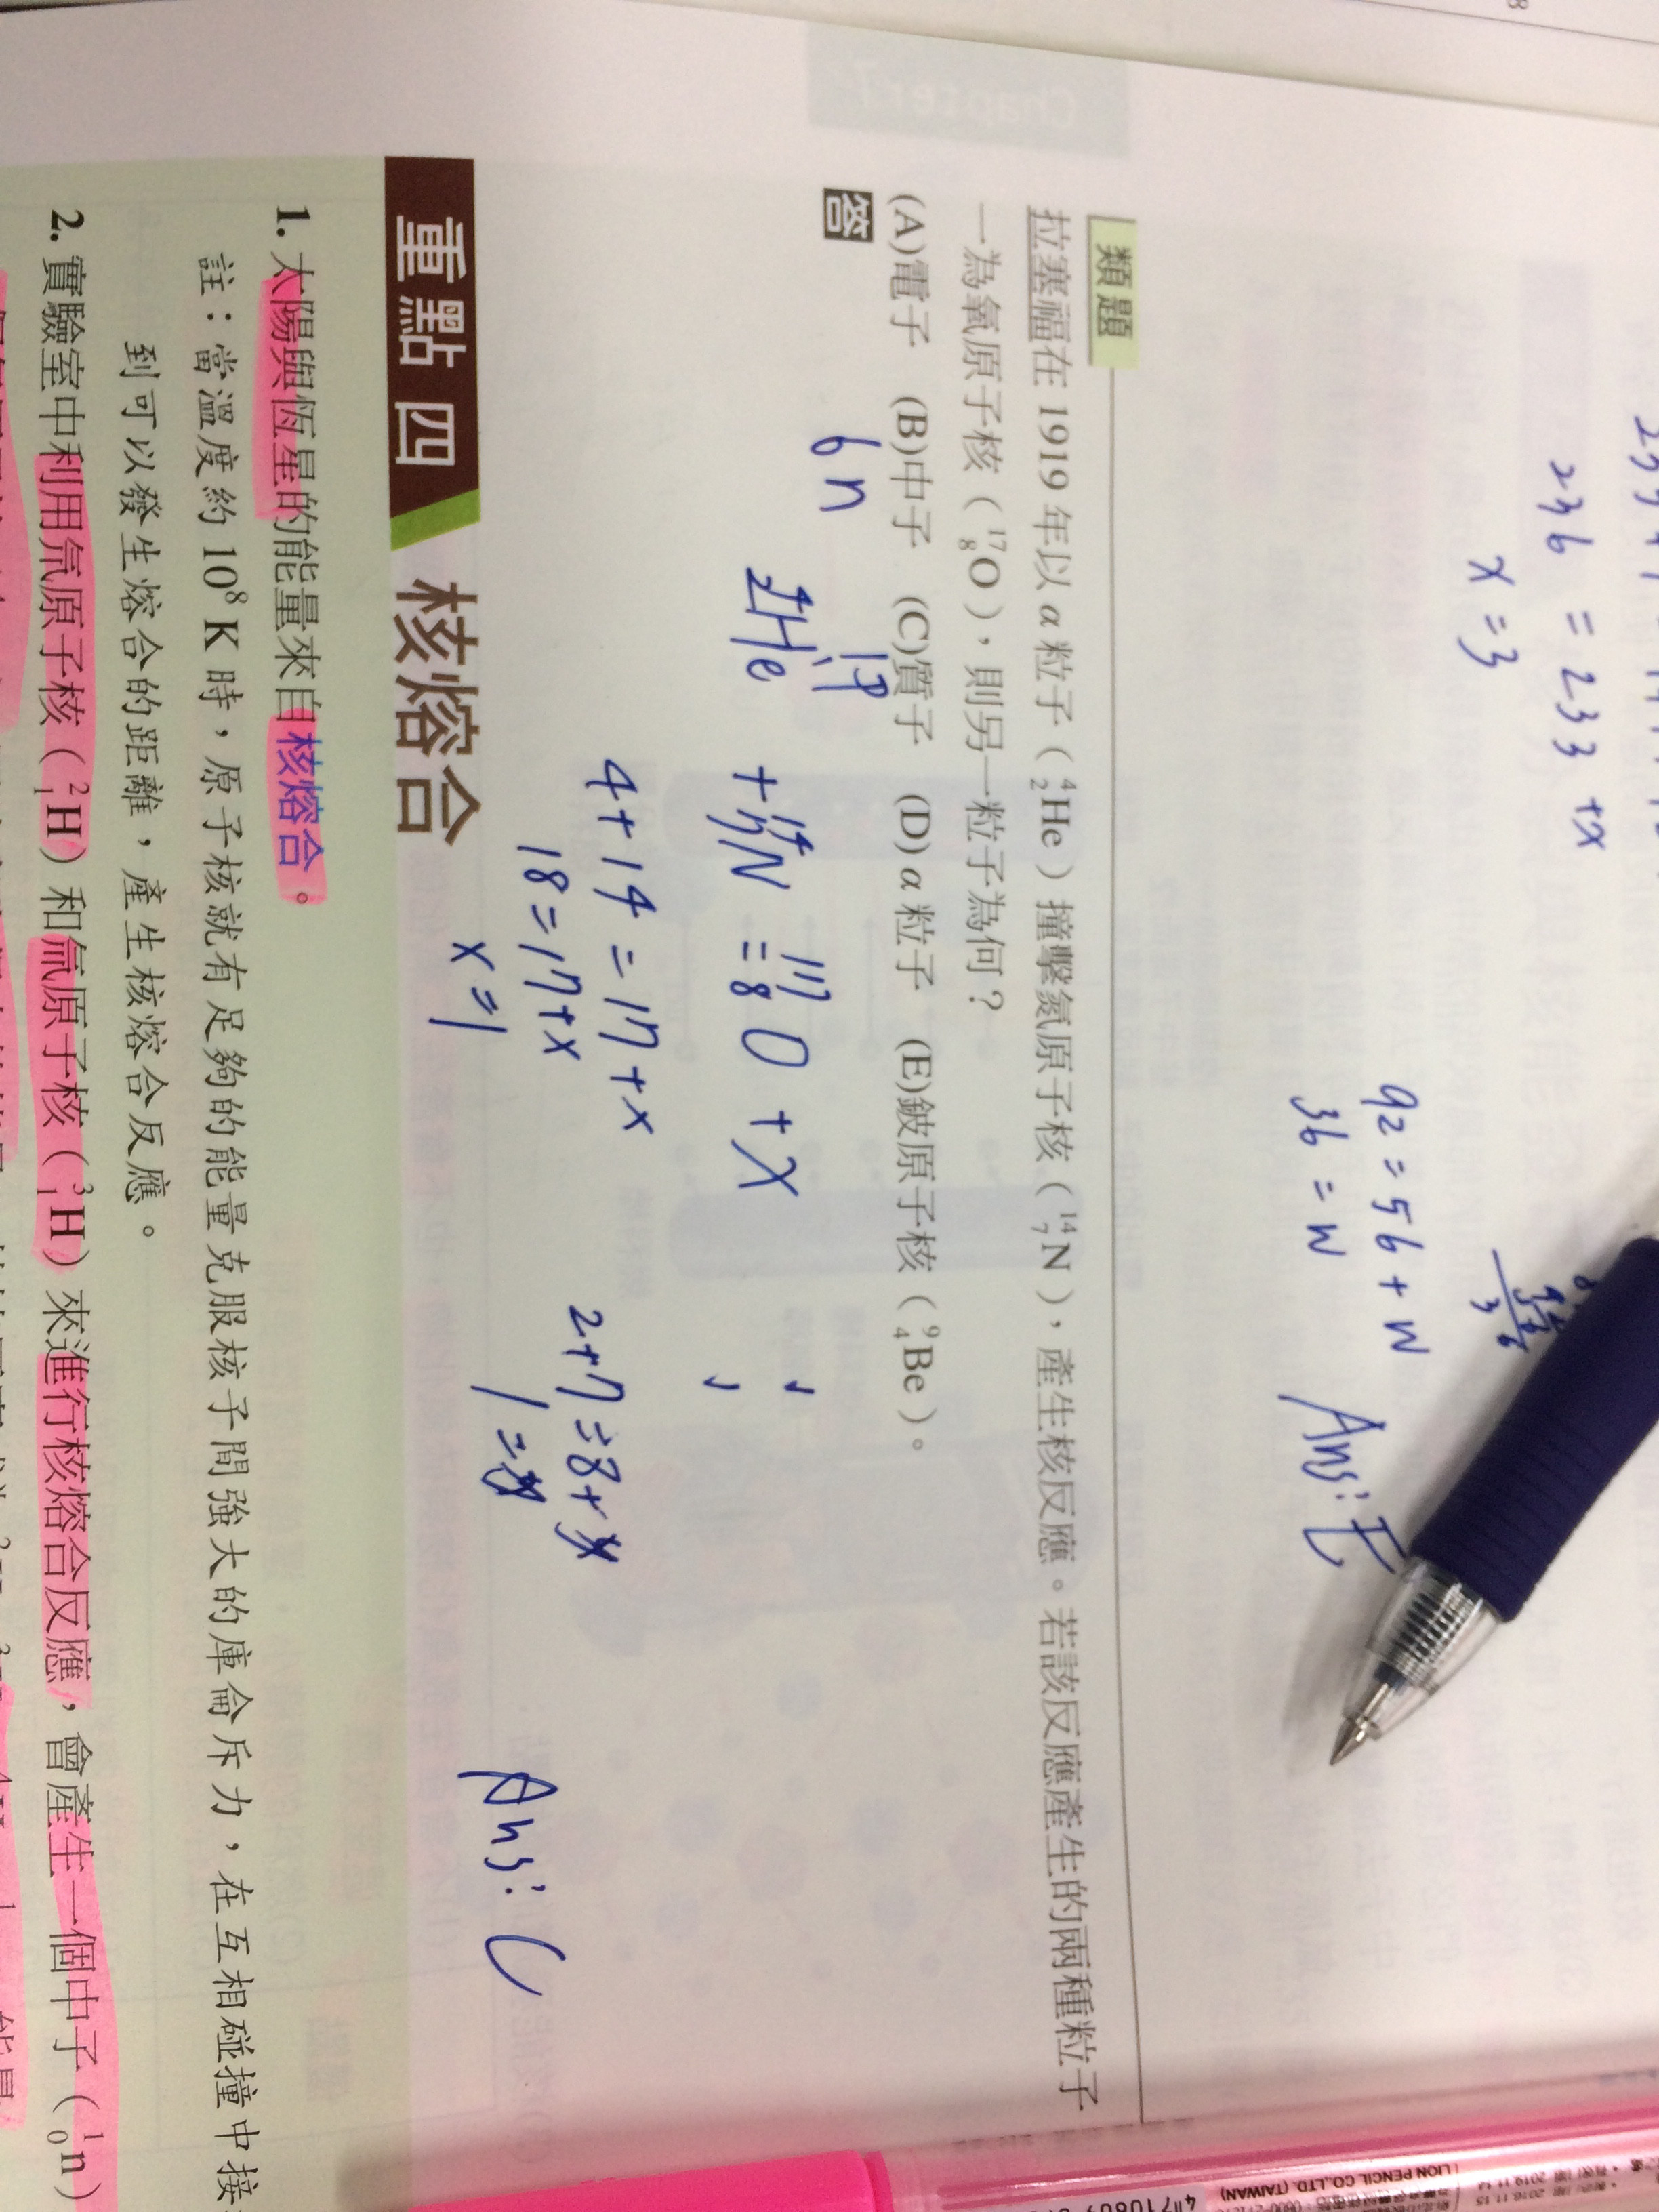 236 = 233 + x
x = 3
92 = 56 + w
36 = w
Ans: E
類題
拉塞福在 1919 年以 α 粒子（⁴₂He）撞擊氮原子核（¹⁴₇N），產生核反應。若該反應產生的兩種粒子
一為氧原子核（¹⁷₈O），則另一粒子為何？
(A)電子 (B)中子 (C)質子 (D)α 粒子 (E)鈹原子核（⁹₄Be）。
答
⁴₂He + ¹⁴₇N = ¹⁷₈O + X
4 + 14 = 17 + x
18 = 17 + x
x = 1
Ans: C
重點 四 核熔合
1. 太陽與恆星的能量來自核熔合。
註：當溫度約 10⁸ K 時，原子核就有足夠的能量克服核子間強大的庫侖斥力，在互相碰撞中接
到可以發生熔合的距離，產生核熔合反應。
2. 實驗室中利用氘原子核（²₁H）和氚原子核（³₁H）來進行核熔合反應，會產生一個中子（¹₀n）
LION PENCIL CO.,LTD. (TAIWAN)